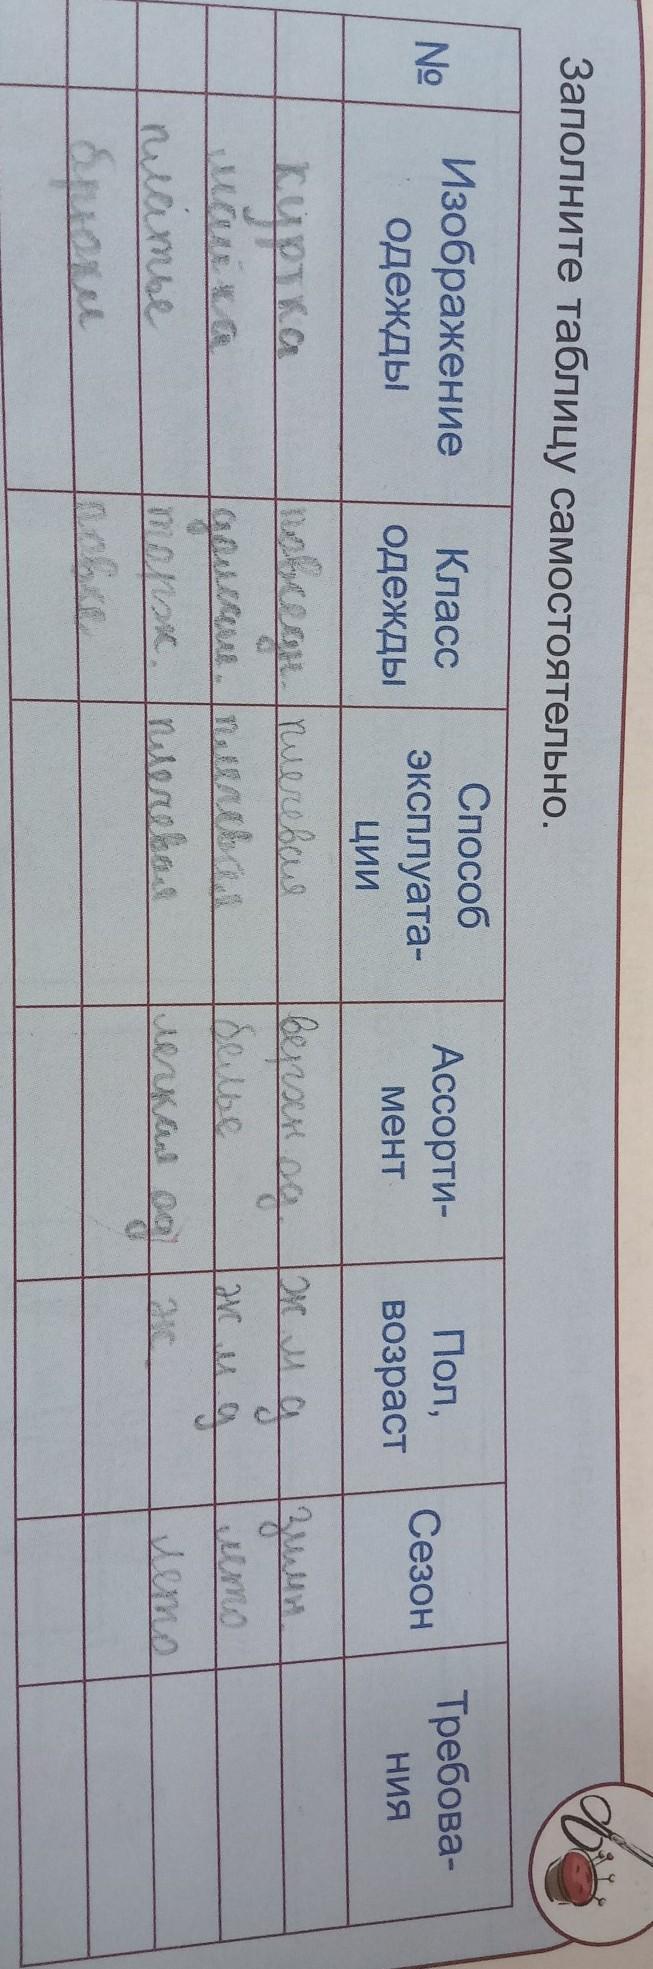 Заполните таблицу самостоятельно.
№ Изображение одежды Класс одежды Способ эксплуата-ции Ассорти-мент Пол, возраст Сезон Требова-ния
куртка повседн. плечевая верхн од. ж м д зимн.
майка домаш. плечевая белье ж м д лето
платье торж. плечевая легкая од ж. лето
брюки